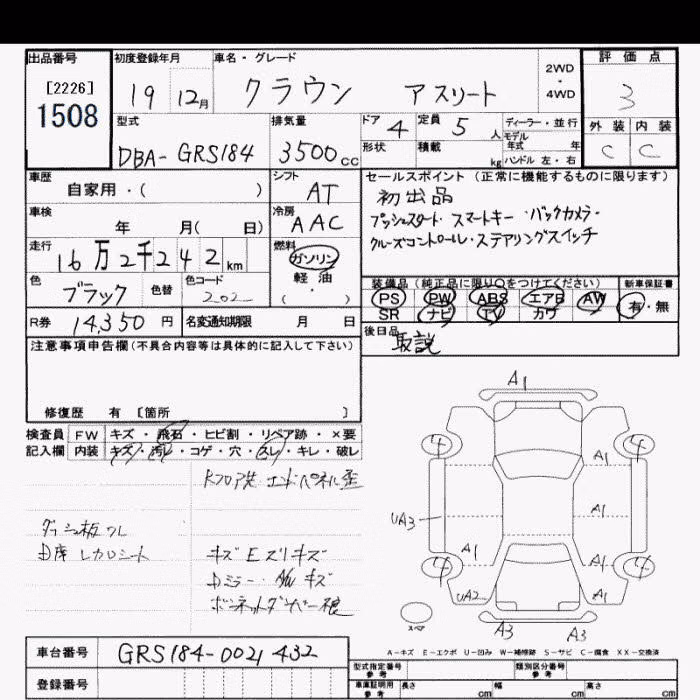 出品番号 初度登録年月 車名・グレード 2WD・4WD 評価点
[2226]
1508
19 12月 クラウン アスリート 3
型式 排気量 ドア 4 定員 5人 ディーラー・並行 外装 内装
DBA-GRS184 3500cc 形状 積載 kg モデル年式 年 C C
ハンドル 左・右
車歴 シフト セールスポイント (正常に機能するものに限ります)
自家用・( ) AT 初出品
車検 冷房 プッシュスタート・スマートキー・バックカメラ・
年 月( 日) AAC クルーズコントロール・ステアリングスイッチ
走行 燃料
16万2千242km ガソリン
軽油
・( )
色 色替 色コード 装備品 (純正品に限り○をつけてください) 新車保証書
ブラック 202 PS PW ABS エアB AW 有・無
SR ナビ TV カワ
R券 14,350円 名変通知期限 月 日 後日品
取説
注意事項申告欄(不具合内容等は具体的に記入して下さい)
修復歴 有 [箇所 ]
検査員 FW キズ・飛石・ヒビ割・リペア跡・×要
記入欄 内装 キズ・汚レ・コゲ・穴・スレ・キレ・破レ
Rフロア洗 エンドパネル歪
ダッシュ板ワレ
D席 レカロシート キズEズリキズ
Dミラー・AWキズ
ボンネットダンパー
A1
4 4
A1
UA3 A1
A1 A1
4 4
UA2 A1
スペア
A3 A3
A-キズ E-エクボ U-凹み W-補修跡 S-サビ C-腐食 XX-交換済
車台番号 GRS184-0021432
登録番号
型式指定番号 参考 類別区分番号 参考
車庫証明用 参考 長さ cm 幅 cm 高さ cm